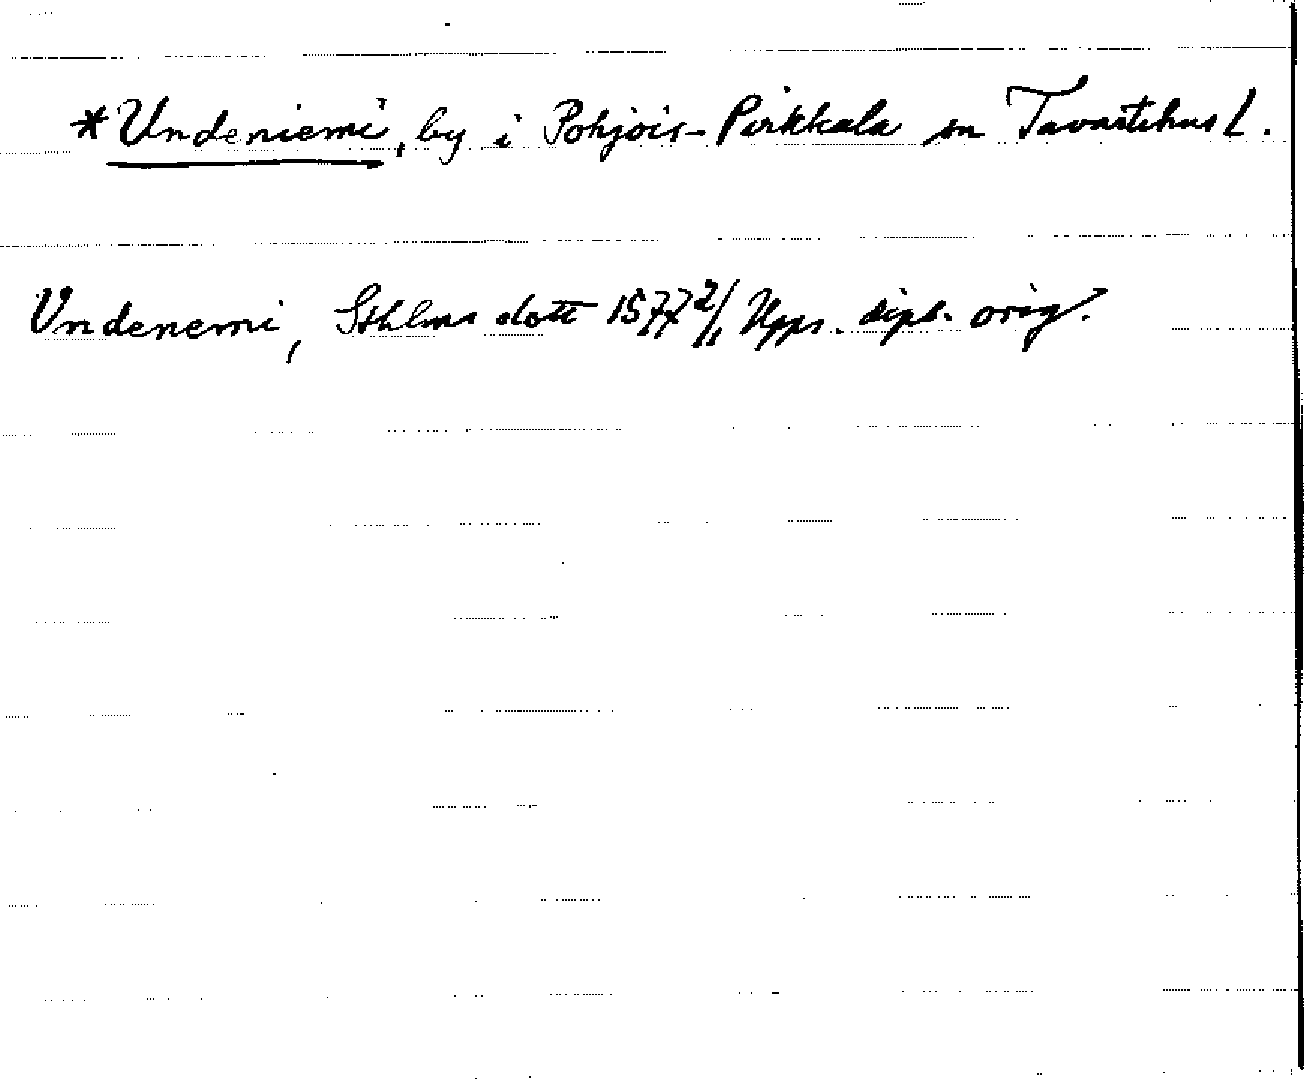 *Undeniemi, by i Pohjois-Pirkkala sn Tavastehus L.
Vndenemi, Sthlms slott 1577 2/1 Upps. dipl. orig.